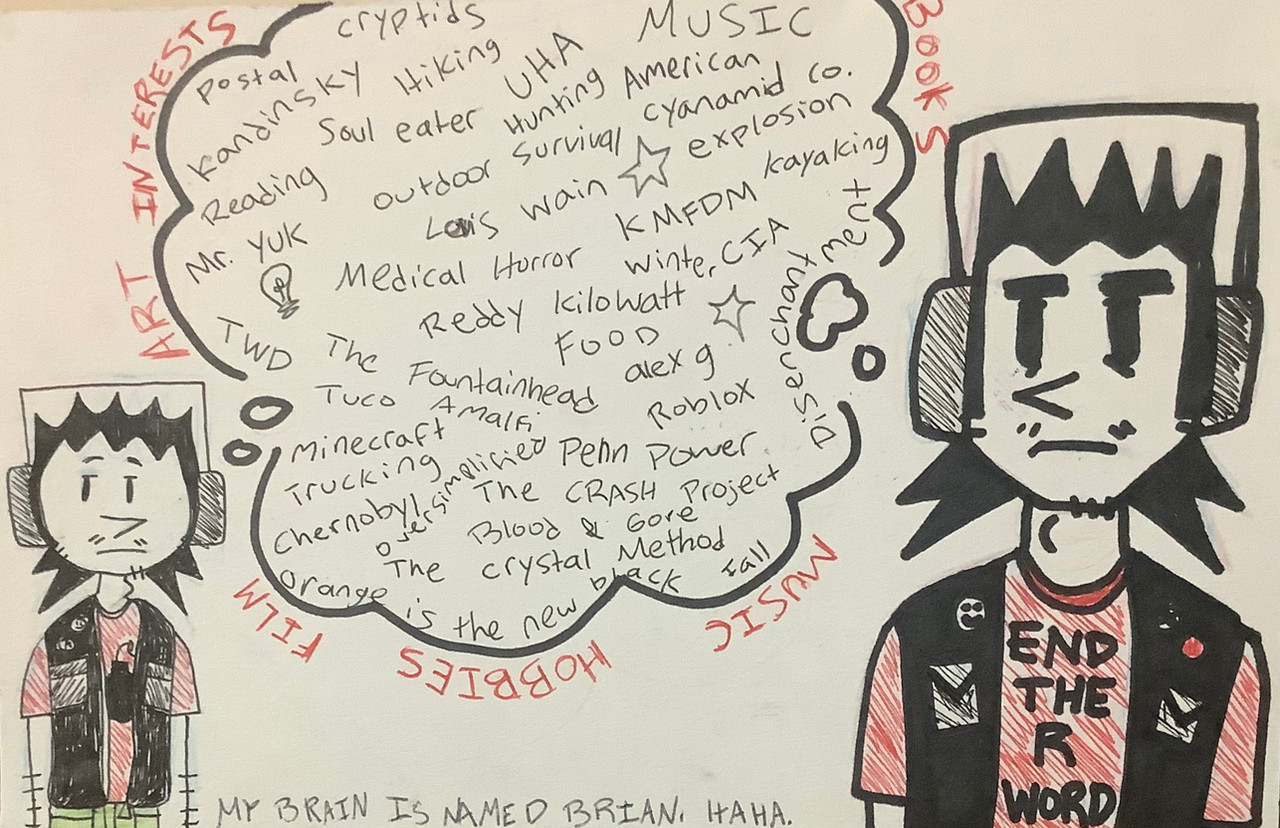 cryptids
MUSIC
BOOKS
ART INTERESTS
Postal
Kandinsky
Hiking
UHA
Soul eater
Hunting
American
Cyanamid Co.
explosion
Reading
outdoor survival
kayaking
Louis Wain
Mr. Yuk
KMFDM
Medical Horror
Winter
CIA
Disenchantment
Reddy Kilowatt
TWD
The
Fountainhead
FOOD
alex g
Tuco
Amalfi
Roblox
Minecraft
Trucking
Oversimplified
Penn Power
Chernobyl
The CRASH Project
Blood & Gore
The Crystal Method
Orange is the new black
Fall
FILM
HOBBIES
MUSIC
END
THE
R
WORD
MY BRAIN IS NAMED BRIAN. HAHA.